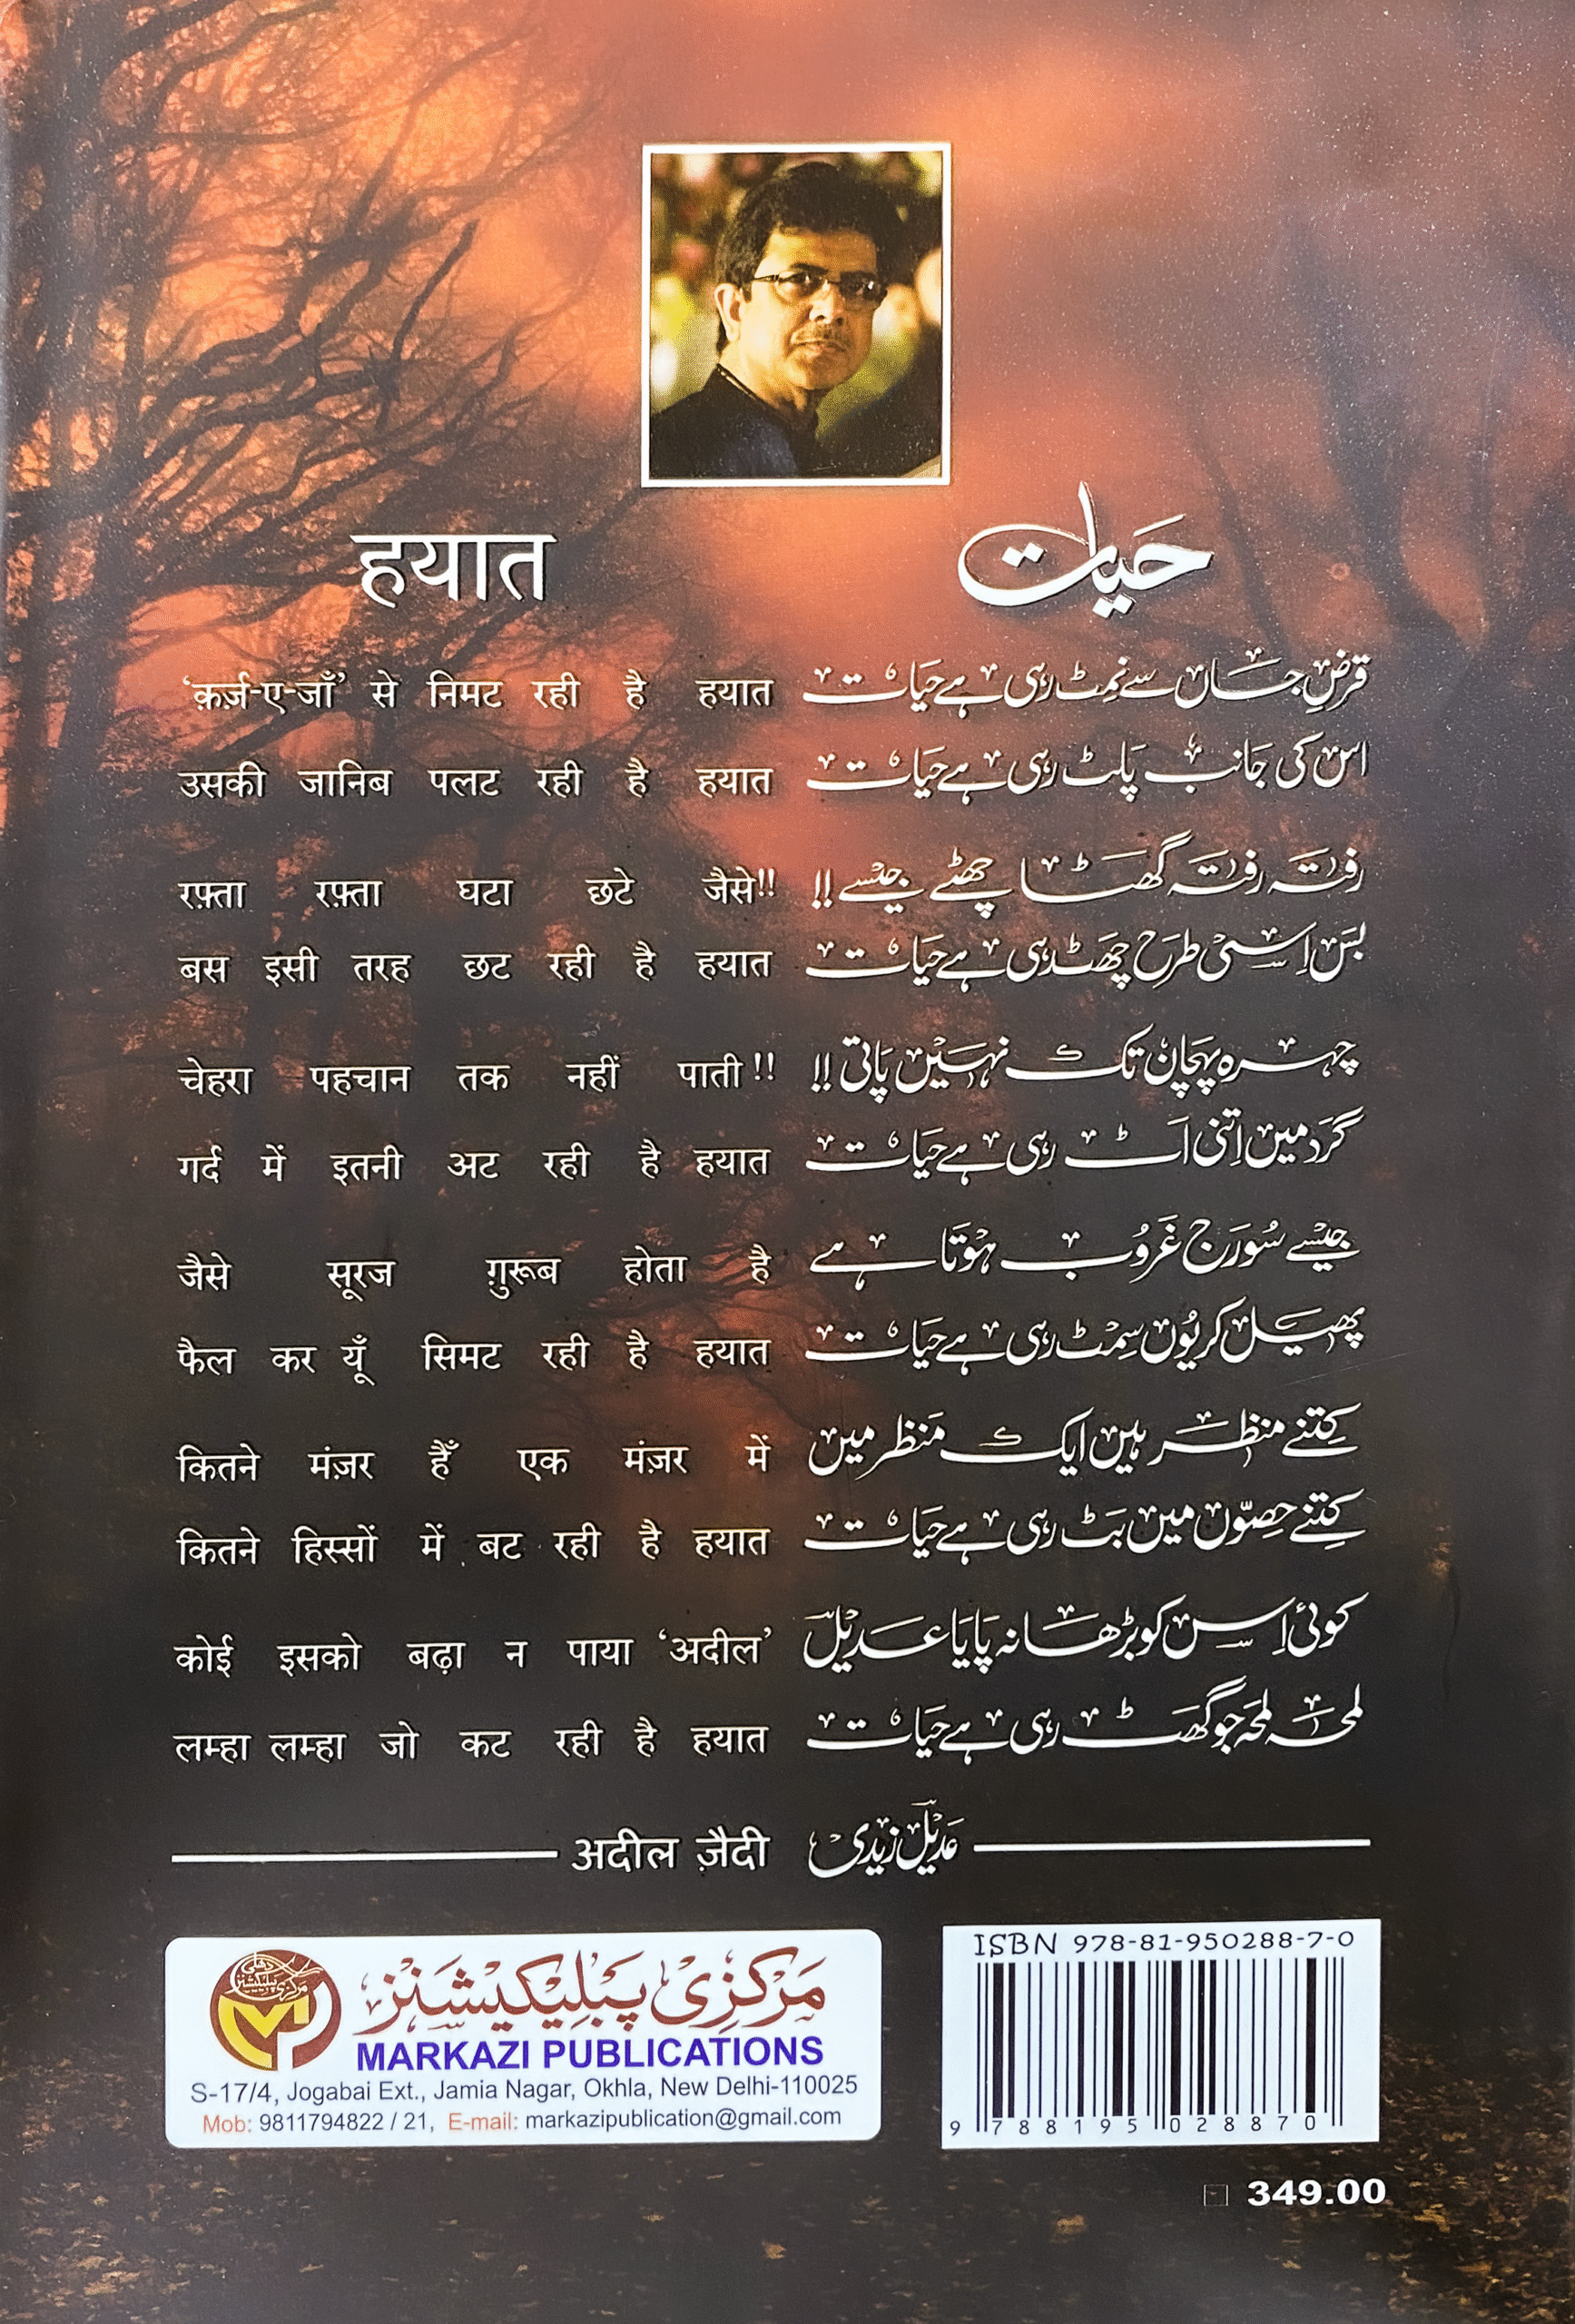 हयात
حیات
‘क़र्ज़-ए-जाँ’ से निमट रही है हयात
قرضِ جاں سے نمٹ رہی ہے حیات
उसकी जानिब पलट रही है हयात
اس کی جانب پلٹ رہی ہے حیات
रफ़्ता रफ़्ता घटा छटे जैसे!!
رفتہ رفتہ گھٹا چھٹے جیسے!!
बस इसी तरह छट रही है हयात
بس اِسی طرح چھٹ رہی ہے حیات
चेहरा पहचान तक नहीं पाती!!
چہرہ پہچان تک نہیں پاتی!!
गर्द में इतनी अट रही है हयात
گرد میں اِتنی اَٹ رہی ہے حیات
जैसे सूरज ग़ुरूब होता है
جیسے سُورج غروب ہوتا ہے
फैल कर यूँ सिमट रही है हयात
پھیل کر یُوں سِمٹ رہی ہے حیات
कितने मंज़र हैँ एक मंज़र में
کِتنے منظر ہیں ایک منظر میں
कितने हिस्सों में बट रही है हयात
کِتنے حصّوں میں بَٹ رہی ہے حیات
कोई इसको बढ़ा न पाया ‘अदील’
کوئی اِس کو بڑھا نہ پایا عدیل
लम्हा लम्हा जो कट रही है हयात
لمحہ لمحہ جو گھٹ رہی ہے حیات
अदील ज़ैदी
عدیل زیدی
مرکزی پبلیکیشنز
MARKAZI PUBLICATIONS
S-17/4, Jogabai Ext., Jamia Nagar, Okhla, New Delhi-110025
Mob: 9811794822 / 21, E-mail: markazipublication@gmail.com
ISBN 978-81-950288-7-0
9 788195 028870
349.00